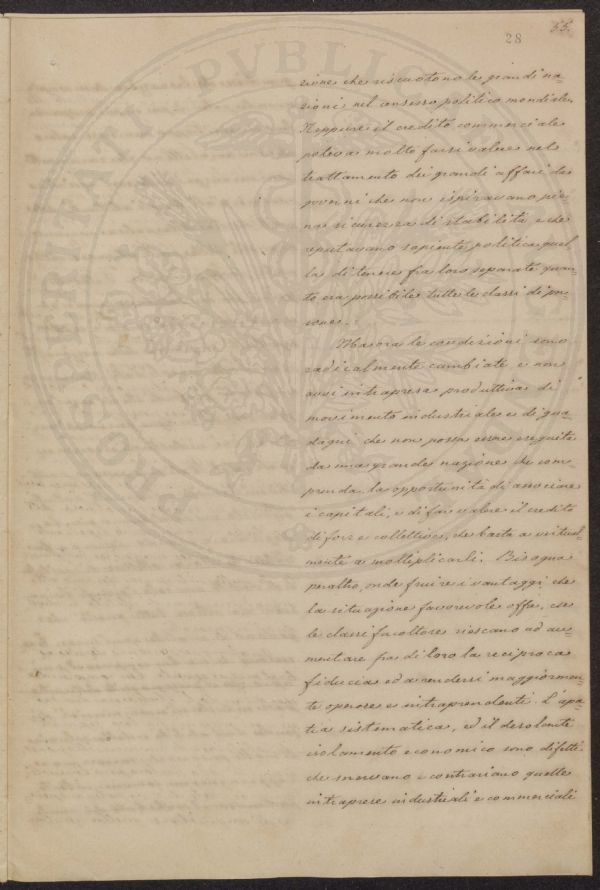 55.
28
zione che riscuotono le grandi na-
zioni nel consesso politico mondiale.
Neppure il credito commerciale
poteva molto farsi valere nel
trattamento dei grandi affari da
governi che non ispiravano pie-
na sicurezza di stabilità e che
reputavano sapiente politica quel-
la di tenere fra loro separate quan-
to era possibile tutte le classi di per-
sone.
Ma ora le condizioni sono
radicalmente cambiate e non
avvi intrapresa produttiva di
movimento industriale e di gua-
dagni che non possa essere eseguita
da una grande nazione che com-
prenda la opportunità di associare
i capitali, e di far valere il credito
di forze collettive, che basta a virtual-
mente a moltiplicarli. Bisogna
peraltro, onde fruire i vantaggi che
la situazione favorevole offre, che
le classi facoltose riescano ad au-
mentare fra di loro la reciproca
fiducia ed a rendersi maggiormen-
te operose e intraprendenti. L'apa-
tia sistematica, ed il desolante
isolamento economico sono difetti
che snervano e contrariano quelle
intraprese industriali e commerciali
PROSPERITATI PVBLICAE